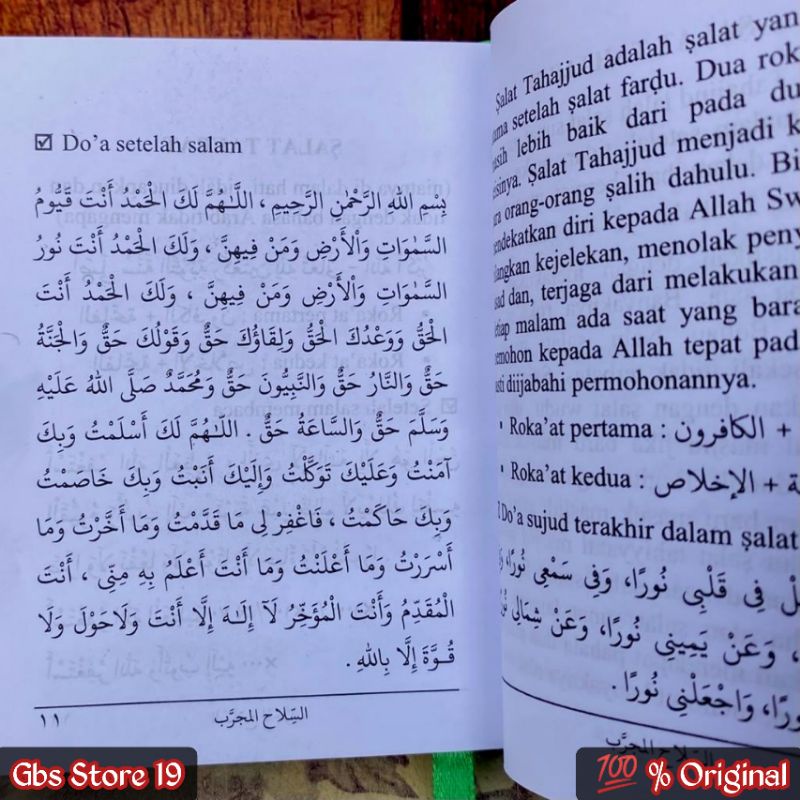 ☑ Do'a setelah salam
بِسْمِ اللهِ الرَّحْمٰنِ الرَّحِيمِ ، اَللّٰهُمَّ لَكَ الْحَمْدُ أَنْتَ قَيُّومُ
السَّمٰوَاتِ وَالْأَرْضِ وَمَنْ فِيهِنَّ ، وَلَكَ الْحَمْدُ أَنْتَ نُورُ
السَّمٰوَاتِ وَالْأَرْضِ وَمَنْ فِيهِنَّ ، وَلَكَ الْحَمْدُ أَنْتَ
الْحَقُّ وَوَعْدُكَ الْحَقُّ وَلِقَاؤُكَ حَقٌّ وَقَوْلُكَ حَقٌّ وَالْجَنَّةُ
حَقٌّ وَالنَّارُ حَقٌّ وَالنَّبِيُّونَ حَقٌّ وَمُحَمَّدٌ صَلَّى اللهُ عَلَيْهِ
وَسَلَّمَ حَقٌّ وَالسَّاعَةُ حَقٌّ . اَللّٰهُمَّ لَكَ أَسْلَمْتُ وَبِكَ
آمَنْتُ وَعَلَيْكَ تَوَكَّلْتُ وَإِلَيْكَ أَنَبْتُ وَبِكَ خَاصَمْتُ
وَبِكَ حَاكَمْتُ ، فَاغْفِرْ لِى مَا قَدَّمْتُ وَمَا أَخَّرْتُ وَمَا
أَسْرَرْتُ وَمَا أَعْلَنْتُ وَمَا أَنْتَ أَعْلَمُ بِهِ مِنِّى ، أَنْتَ
الْمُقَدِّمُ وَأَنْتَ الْمُؤَخِّرُ لَآ إِلٰهَ إِلَّا أَنْتَ وَلَاحَوْلَ وَلَا
قُوَّةَ إِلَّا بِاللهِ .
١١ السِّلَاح المجرَّب
Ṣalat Tahajjud adalah ṣalat yan
setelah ṣalat farḍu. Dua rok
lebih baik dari pada du
Ṣalat Tahajjud menjadi k
orang-orang ṣalih dahulu. Bi
diri kepada Allah Sw
kejelekan, menolak peny
dan, terjaga dari melakukan
malam ada saat yang bara
kepada Allah tepat pad
diijabahi permohonannya.
• Roka'at pertama : الكافرون +
• Roka'at kedua : الإخلاص +
Do'a sujud terakhir dalam ṣalat
فِى قَلْبِى نُورًا، وَفِى سَمْعِى نُورًا،
وَعَنْ يَمِينِى نُورًا، وَعَنْ شِمَالِى
وَاجْعَلْنِى نُورًا .
السِّلَاح المجرَّب
Gbs Store 19
💯 % Original